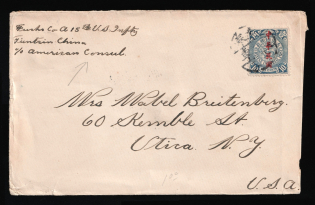 Co A 15th U.S. Inft
Tientsin China
c/o American Consul.
Mrs Mabel Breitenberg.
60 Kemble St
Utica. N.Y
U.S.A.